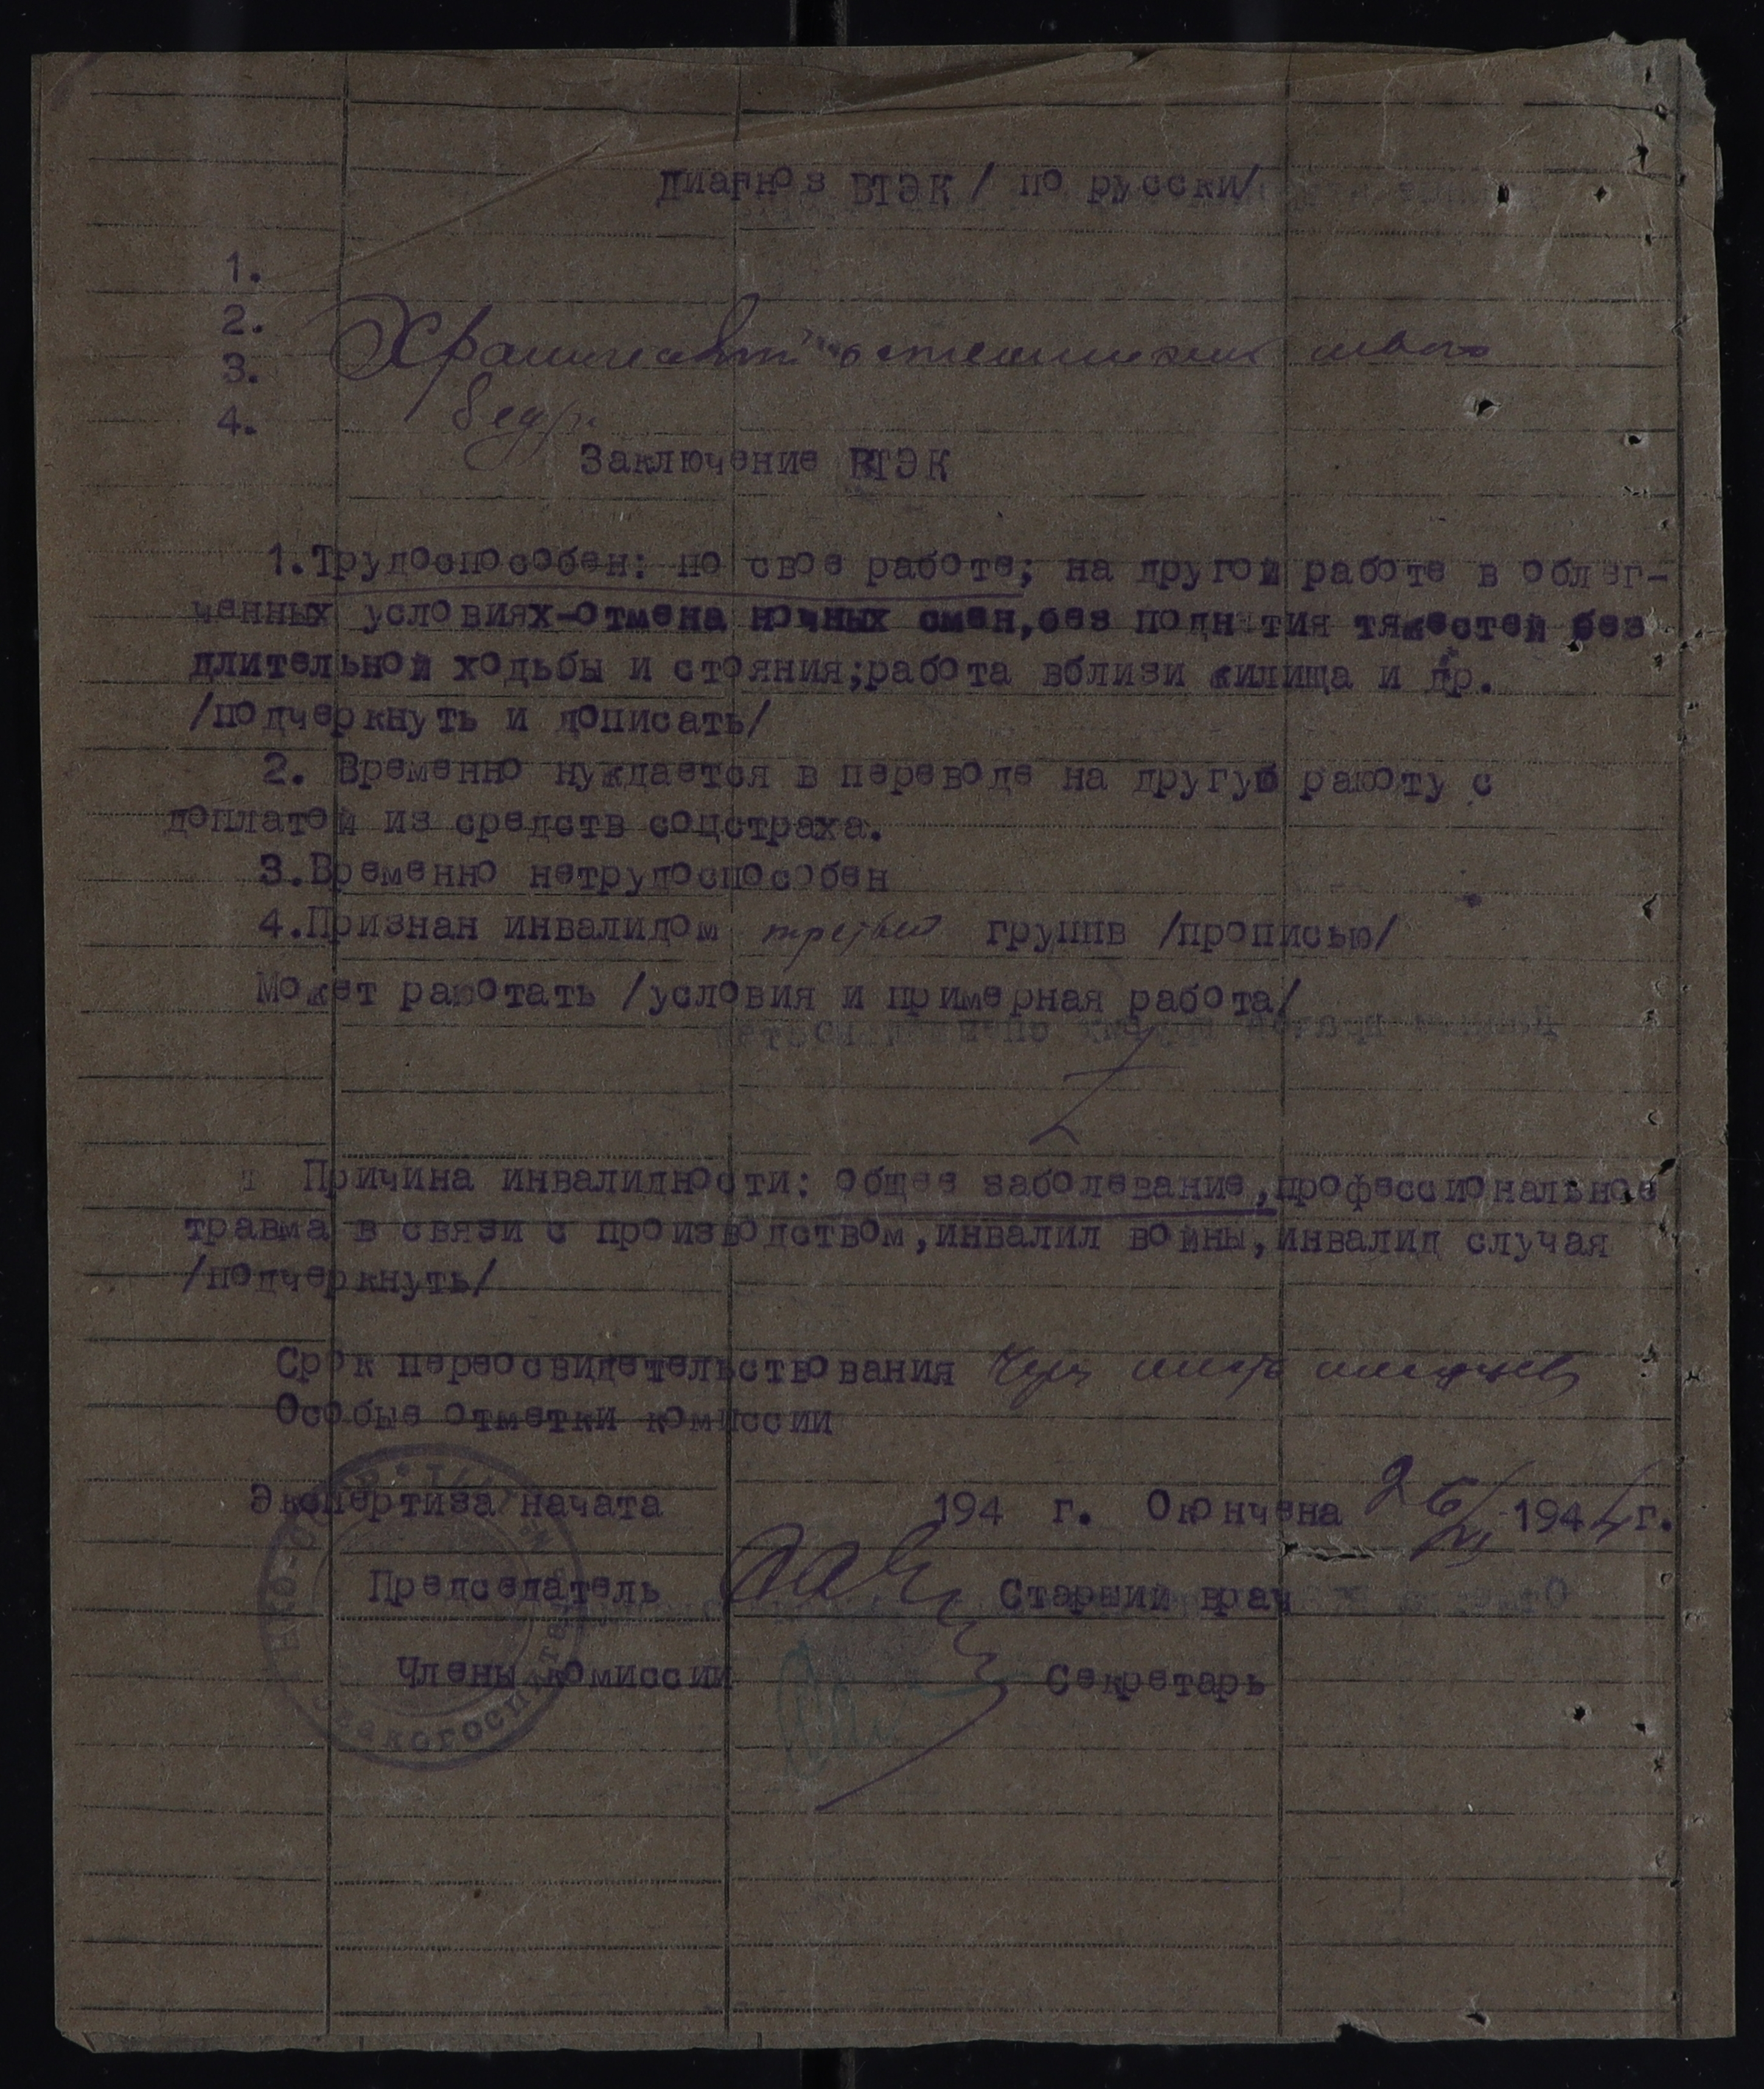 Диагноз ВТЭК / по русски/
1.
2.
3. Хронический остеомиелит левого
4. бедра
Заключение ВТЭК
1.Трудоспособен: по свое работе; на другой работе в облег-
ченных условиях-отмена ночных смен,без поднятия тяжестей без
длительной ходьбы и стояния;работа вблизи жилища и др.
/подчеркнуть и дописать/
2. Временно нуждается в переводе на другую работу с
доплатой из средств соцстраха.
3.Временно нетрудоспособен
4.Признан инвалидом третьей группв /прописью/
Может работать /условия и примерная работа/
Причина инвалидности: общее заболевание,профессиональное
травма в связи с производством,инвалил войны,инвалид случая
/подчеркнуть/
Срок переосвидетельствования Через шесть месяцев
Особые отметки комиссии
Экспертиза начата 194 г. Окончена 26/VI 1944г.
Председатель Старший врач
Члены комиссии Секретарь